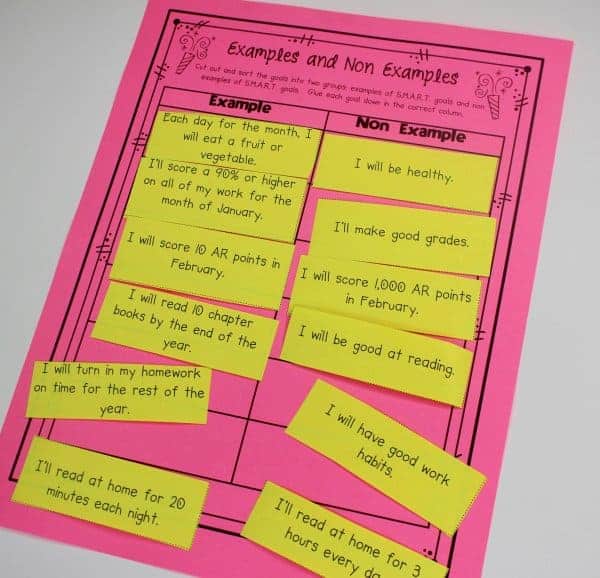 Examples and Non Examples
Cut out and sort the goals into two groups: examples of S.M.A.R.T. goals and non
examples of S.M.A.R.T. goals. Glue each goal down in the correct column.
Example
Non Example
Each day for the month, I
will eat a fruit or
vegetable.
I will be healthy.
I'll score a 90% or higher
on all of my work for the
month of January.
I'll make good grades.
I will score 10 AR points in
February.
I will score 1,000 AR points
in February.
I will read 10 chapter
books by the end of the
year.
I will be good at reading.
I will turn in my homework
on time for the rest of the
year.
I will have good work
habits.
I'll read at home for 20
minutes each night.
I'll read at home for 3
hours every